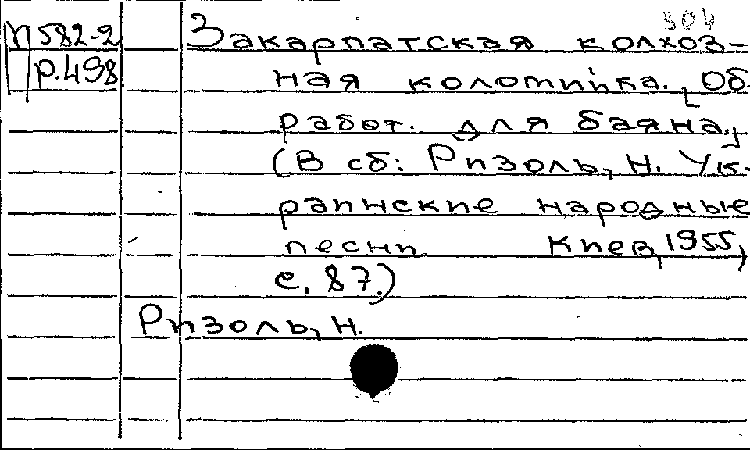 304
П582-2 Закарпатская колхоз-
р.498 ная коломийка. [Об
работ. для баяна.]
(В сб: Ризоль, Н. Ук-
раинские народные
песни Киев, 1955,
с. 87.)
Ризоль, Н.